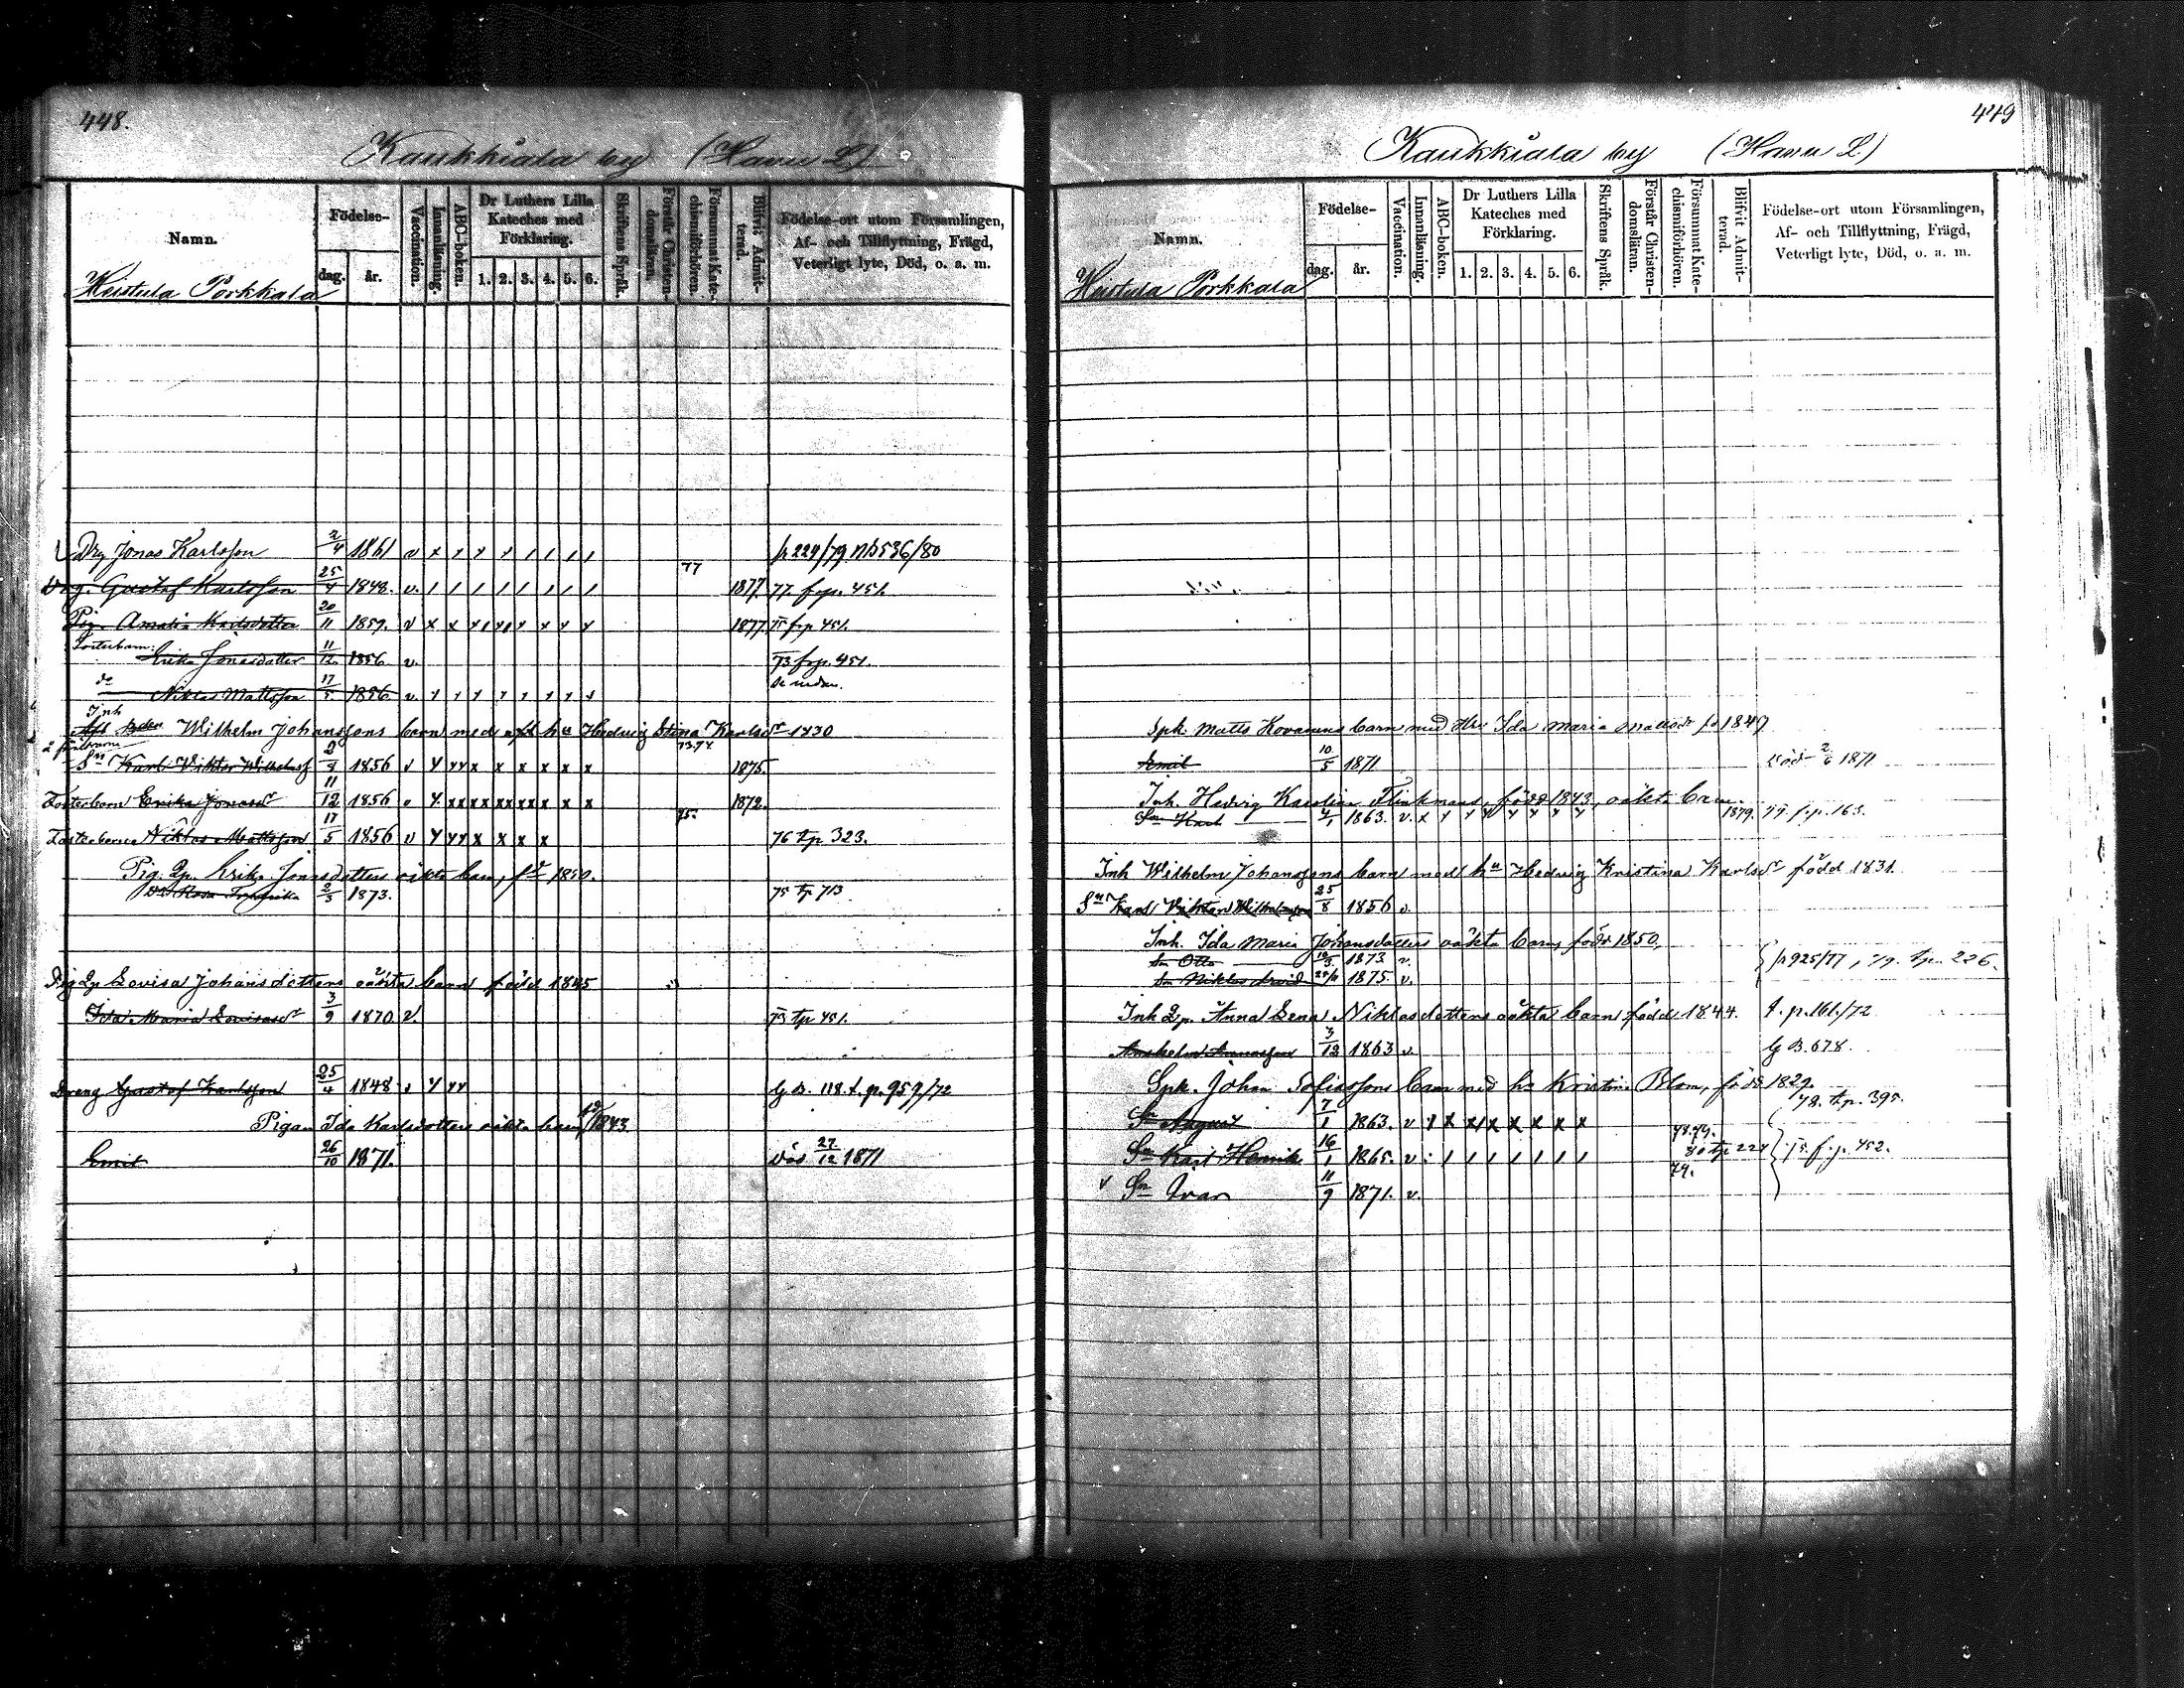 448.
Kaukkiala by (Havu L)
Namn.
Födelse-
dag.
år.
Vaccination.
Innanläsning.
ABC-boken.
Dr Luthers Lilla
Kateches med
Förklaring.
1. 2. 3. 4. 5. 6.
Skriftens Språk.
Förstår Christen-
domsläran.
Försummat Kate-
chismiförhören.
Blifvit Admit-
terad.
Födelse-ort utom Församlingen,
Af- och Tillflyttning, Frägd,
Veterligt lyte, Död, o. a. m.
Heistula Porkkala
Drg Jonas Karlsson 2/4 1861 v x
77
Drg. Gustaf Karlsson 25/4 1848. v. 1877. 77. frp. 451.
Pig. Amalia Karlsdotter 20/11 1859. v x x 1877 frp 451.
Fosterbarn: Erika Jonasdotter 11/12 1856 v. 73 frp. 451.
do Niklas Mattsson 17/5 1856 v.
Inh
Wilhelm Johanssons barn med hu Hedwig Stina Karlsdr 1830
73.74
Sn Karl Viktor Wilhelmss 1856 v 1875.
Fosterbarn Erika Jonasdr 11/12 1856 1872.
75.
Fosterbarn Niklas Mattsson 17/5 1856 v 76 tp 323.
Pig. Qp. Erika Jonasdotters oäkta barn, fd 1850.
Dr Rosa Fredrika 2/3 1873. 75 tp 713
Pig Qp Lovisa Johansdotters oäkta barn född 1845
Ida Maria Lovisasdr 3/9 1870 v. 73 tp 451.
Dreng Gustaf Karlsson 25/4 1848 v G B. 118. t. p. 959/72
Pigan Ida Karlsdotters oäkta barn fd 1843
Emil 26/10 1871. död 27/12 1871
449
Kaukkiala by (Havu L)
Namn.
Födelse-
dag.
år.
Vaccination.
Innanläsning.
ABC-boken.
Dr Luthers Lilla
Kateches med
Förklaring.
1. 2. 3. 4. 5. 6.
Skriftens Språk.
Förstår Christen-
domsläran.
Försummat Kate-
chismiförhören.
Blifvit Admit-
terad.
Födelse-ort utom Församlingen,
Af- och Tillflyttning, Frägd,
Veterligt lyte, Död, o. a. m.
Heistula Porkkala
Spk. Matts Kovanens barn med Hu Ida Maria Mattsdr fd 1849
Emil 10/5 1871 död 2/6 1871
Inh. Hedvig Karolina Flinkmans, född 1843, oäkta barn
Sn Karl 1863. v. 1879. 79. f. p. 163.
Inh Wilhelm Johanssons barn med hu Hedwig Kristina Karlsdr född 1831.
Sn Karl Viktor Wilhelmsson 25/8 1856 v.
Inh. Ida Maria Johansdotters oäkta barn, född 1850,
Sn Otto 1873 v.
p 925/77, 79. tp. 226.
Sn Niklas Arvid 1875. v.
Inh Qp. Anna Lena Niklasdotters oäkta barn född 1844. t. p. 161/72
Anshelm Annasson 3/12 1863 v. G B. 678.
Spk. Johan Sofiassons barn med hu Kristina Blom, född 1829.
78. t. p. 395.
Sn August 7/1 1863. v
78.79.
Sn Karl Henrik 16/1 1865. v. 80 tp 224 75 f. p. 452.
79.
v Sn Ivar 11/9 1871. v.